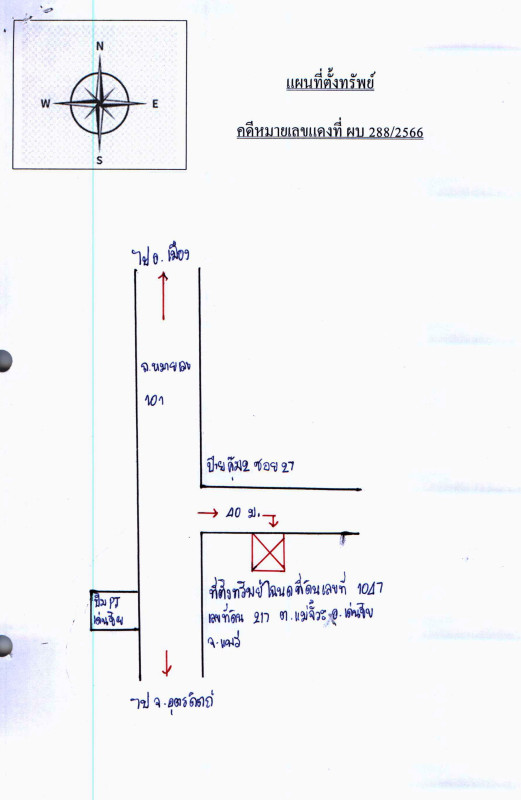 N
W E
S
แผนที่ตั้งทรัพย์
คดีหมายเลขแดงที่ ผบ 288/2566
ไป อ. เมือง
ถ.หมายเลข
101
ป้าย คุ้ม2 ซอย 27
40 ม.
ที่ตั้งทรัพย์ โฉนดที่ดินเลขที่ 1047
เลขที่ดิน 217 ต.แม่จั๊วะ อ.เด่นชัย
จ.แพร่
ปั๊ม PT
เด่นชัย
ไป จ.อุตรดิตถ์